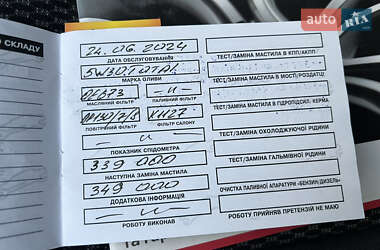 auto.RIA
О СКЛАДУ
24.06.2024
ДАТА ОБСЛУГОВУВАННЯ
5W30TOTAL
МАРКА ОЛИВИ
МАСЛЯНИЙ ФІЛЬТР
ПАЛИВНИЙ ФІЛЬТР
ПОВІТРЯНИЙ ФІЛЬТР
ФІЛЬТР САЛОНУ
ПОКАЗНИК СПІДОМЕТРА
339 000
НАСТУПНА ЗАМІНА МАСТИЛА
349 000
ДОДАТКОВА ІНФОРМАЦІЯ
РОБОТУ ВИКОНАВ
ТЕСТ/ЗАМІНА МАСТИЛА В КПП/АКПП
ТЕСТ/ЗАМІНА МАСТИЛА В МОСТІ/РОЗДАТЦІ
ТЕСТ/ЗАМІНА МАСТИЛА В ГІДРОПІДСИЛ. КЕРМА
ТЕСТ/ЗАМІНА ОХОЛОДЖУЮЧОЇ РІДИНИ
ТЕСТ/ЗАМІНА ГАЛЬМІВНОЇ РІДИНИ
ОЧИСТКА ПАЛИВНОЇ АПАРАТУРИ «БЕНЗИН/ДИЗЕЛЬ»
РОБОТУ ПРИЙНЯВ ПРЕТЕНЗІЙ НЕ МАЮ